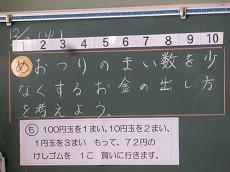 1 2 3 4 5 6 7 8 9 10
め おつりのまい数を少
なくするお金の出し方
を考えよう。
も 100円玉を1まい、10円玉を2まい、
1円玉を3まい もって、72円の
けしゴムを 1こ 買いに行きます。